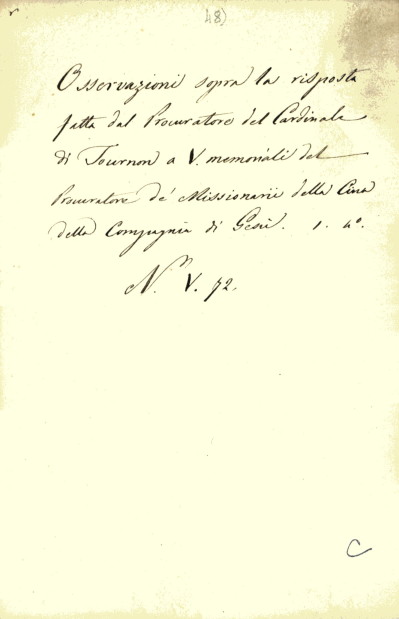 48)
Osservazioni sopra la risposta
fatta dal Procuratore del Cardinale
di Tournon a V. memoriali del
Procuratore de' Missionarii della Cina
della Compagnia di Gesù. 1. 4º.
N. V. 72.
C